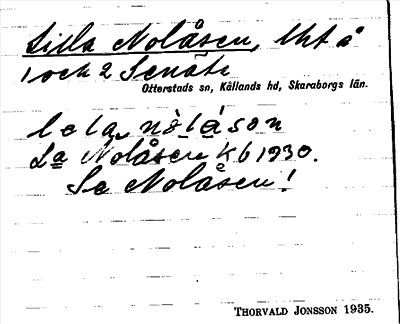 Lilla Nolåsen, lht å
1 och 2 Senäte
Otterstads sn, Kållands hd, Skaraborgs län.
lela nòlåson
La Nolåsen Kb 1930.
Se Nolåsen!
THORVALD JONSSON 1935.